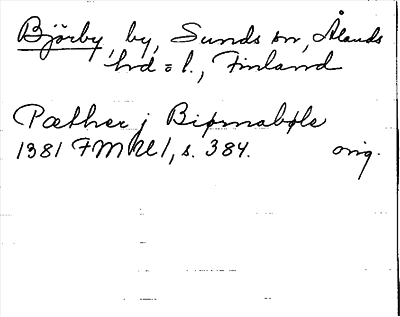 Björby, by, Sunds sn, Ålands
hd o l., Finland
Pæther j Biørnabøle
1381 FMU 1, s. 384. orig.